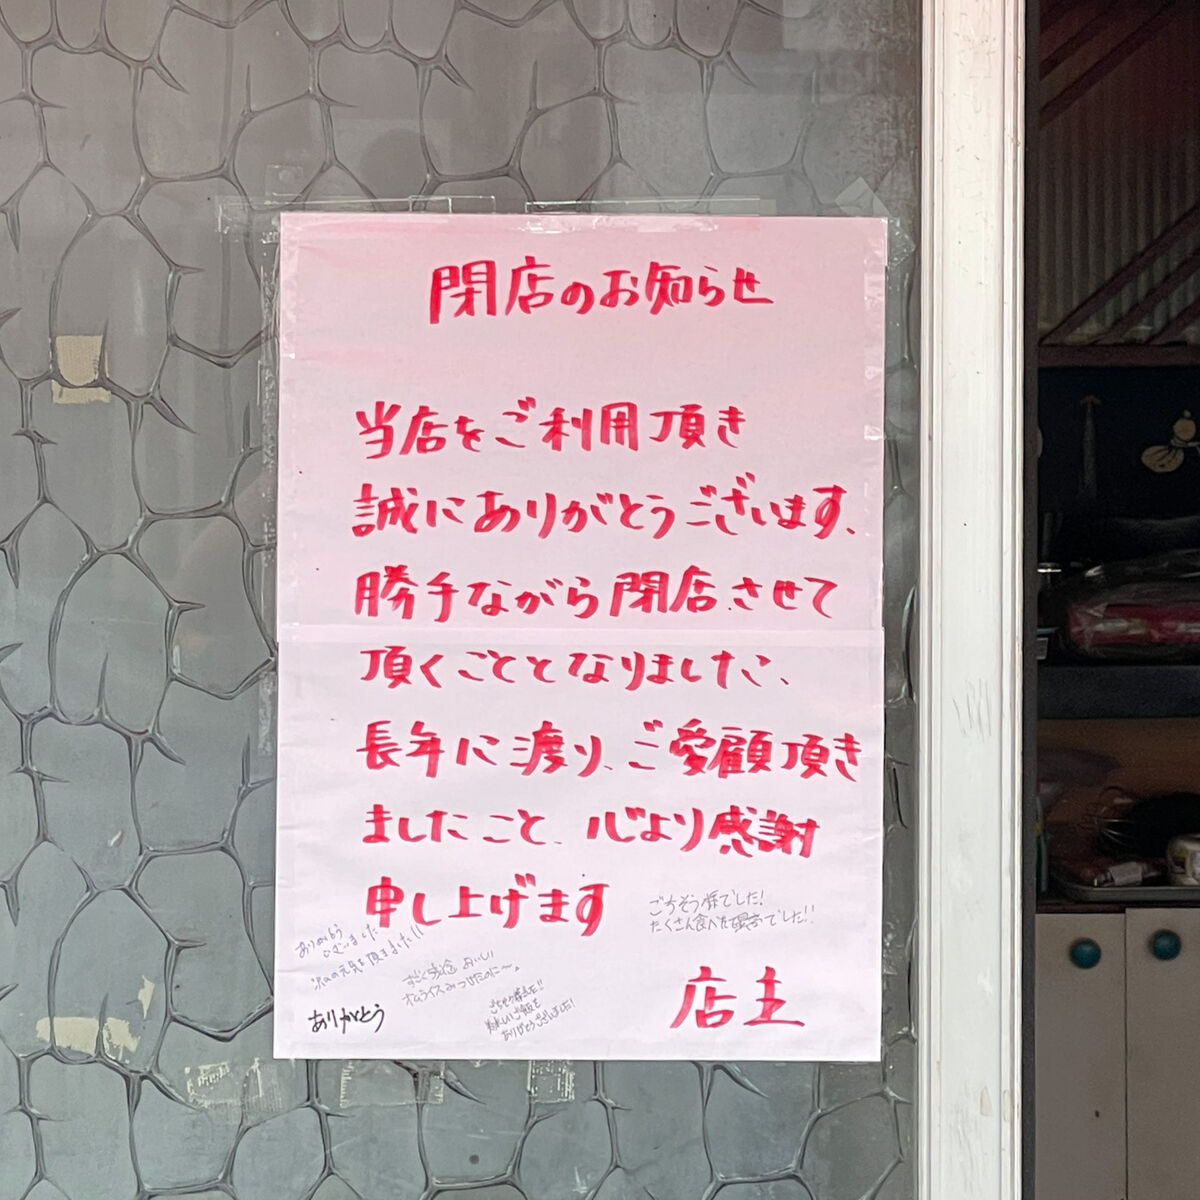 閉店のお知らせ
当店をご利用頂き
誠にありがとうございます、
勝手ながら閉店、させて
頂くこととなりました、
長年に渡り、ご愛顧頂き
ましたこと、心より感謝
申し上げます
ごちそう様でした!
たくさん食べた最高でした!!
ありがとう
ございました
沢山の元気を頂きました!!
すごく残念 おいしい
オムライスみつけたのに〜。
ごちそう様でした!!
美味しいご飯を
ありがとうございました!
ありがとう
店主